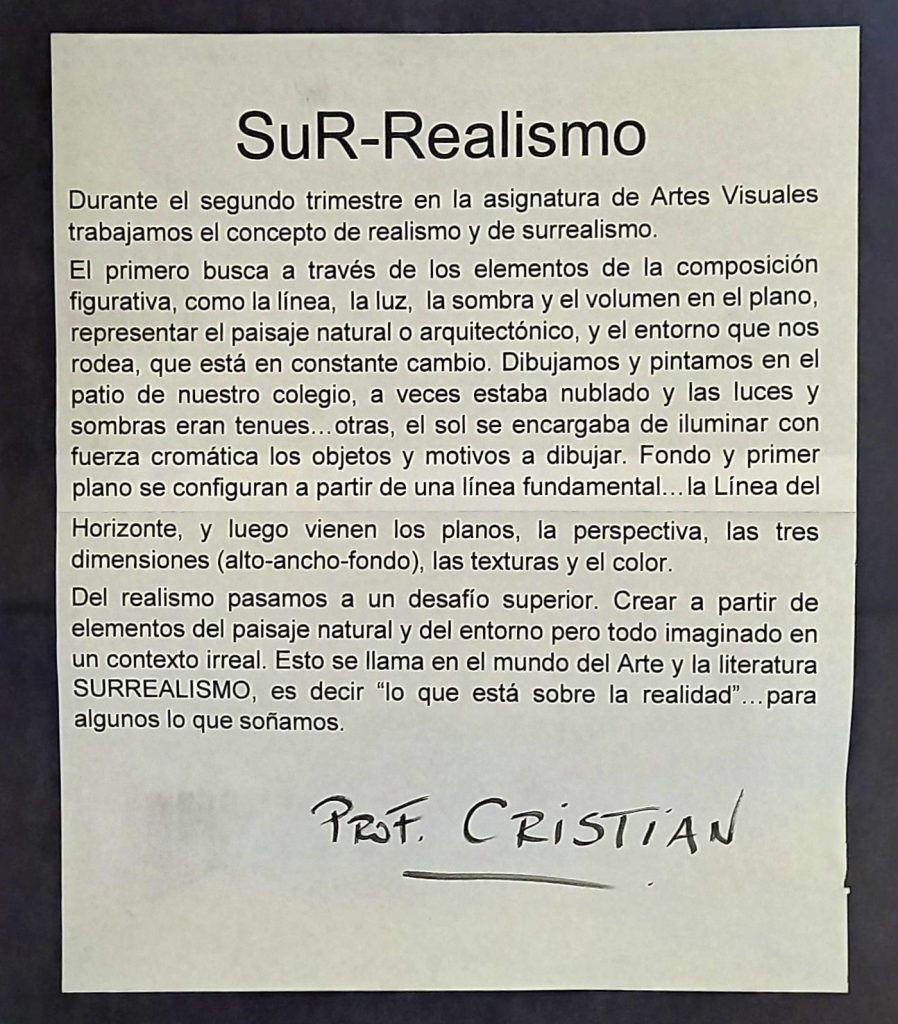 SuR-Realismo
Durante el segundo trimestre en la asignatura de Artes Visuales
trabajamos el concepto de realismo y de surrealismo.
El primero busca a través de los elementos de la composición
figurativa, como la línea, la luz, la sombra y el volumen en el plano,
representar el paisaje natural o arquitectónico, y el entorno que nos
rodea, que está en constante cambio. Dibujamos y pintamos en el
patio de nuestro colegio, a veces estaba nublado y las luces y
sombras eran tenues...otras, el sol se encargaba de iluminar con
fuerza cromática los objetos y motivos a dibujar. Fondo y primer
plano se configuran a partir de una línea fundamental...la Línea del
Horizonte, y luego vienen los planos, la perspectiva, las tres
dimensiones (alto-ancho-fondo), las texturas y el color.
Del realismo pasamos a un desafío superior. Crear a partir de
elementos del paisaje natural y del entorno pero todo imaginado en
un contexto irreal. Esto se llama en el mundo del Arte y la literatura
SURREALISMO, es decir “lo que está sobre la realidad”...para
algunos lo que soñamos.
PROF. CRISTIAN